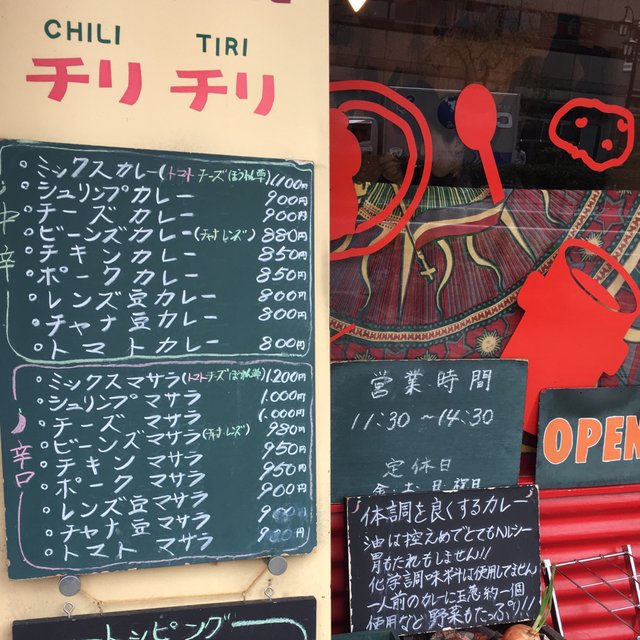 CHILI TIRI
チリ チリ
中辛
・ミックスカレー(トマト チーズ ほうれん草) 1,100円
・シュリンプカレー 900円
・チーズカレー 900円
・ビーンズカレー(チャナ レンズ) 880円
・チキンカレー 850円
・ポークカレー 850円
・レンズ豆カレー 800円
・チャナ豆カレー 800円
・トマトカレー 800円
辛口
・ミックスマサラ(トマト チーズ ほうれん草) 1,200円
・シュリンプマサラ 1,000円
・チーズマサラ 1,000円
・ビーンズマサラ(チャナ レンズ) 980円
・チキンマサラ 950円
・ポークマサラ 950円
・レンズ豆マサラ 900円
・チャナ豆マサラ 900円
・トマトマサラ 900円
トッピング
営業時間
11:30〜14:30
定休日
OPEN
体調を良くするカレー
油は控えめでとてもヘルシー
胃もたれもしません!!
化学調味料は使用してません
一人前のカレーに玉葱約一個
使用など野菜もたっぷり!!